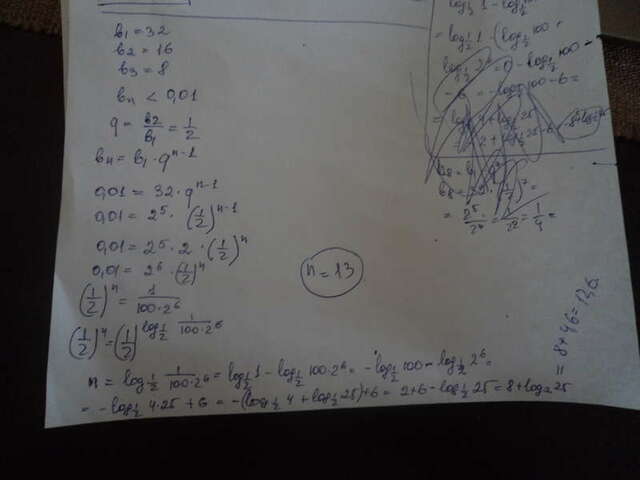 b₁ = 32
b₂ = 16
b₃ = 8
bₙ < 0,01
q = b₂/b₁ = 1/2
bₙ = b₁ · q^(n-1)
0,01 = 32 · q^(n-1)
0,01 = 2⁵ · (1/2)^(n-1)
0,01 = 2⁵ · 2 · (1/2)^n
0,01 = 2⁶ · (1/2)^n
(1/2)^n = 1/(100·2⁶)
(1/2)^n = (1/2)^(log_(1/2) 1/(100·2⁶))
n = log_(1/2) 1/(100·2⁶) = log_(1/2) 1 - log_(1/2) 100·2⁶ = -log_(1/2) 100 - log_(1/2) 2⁶ =
= -log_(1/2) 4·25 + 6 = -(log_(1/2) 4 + log_(1/2) 25) + 6 = 2+6 - log_(1/2) 25 = 8 + log₂ 25
= 8 + 4,6 = 12,6
n = 13
= log_(1/2) 1 - (log_(1/2) 100 +
= 2⁵/2⁷ = 1/2² = 1/4 =